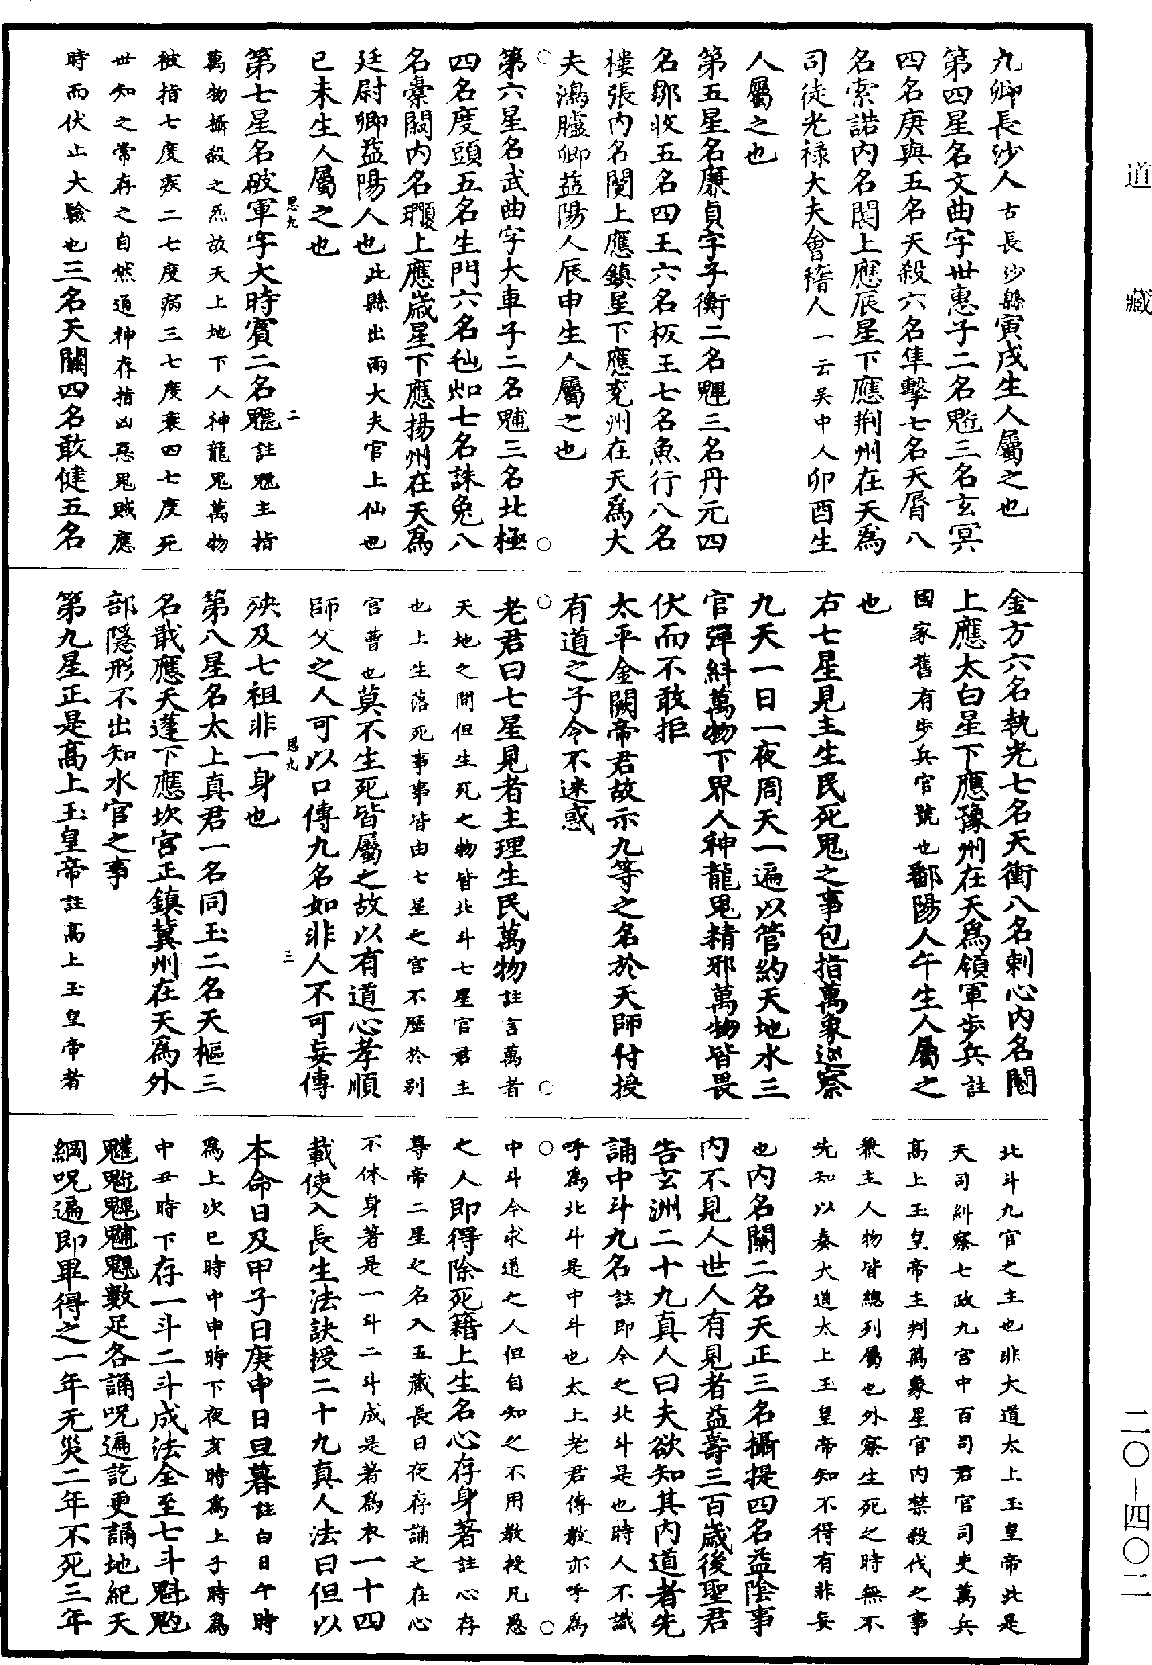 道藏
二〇—四〇二
九卿長沙人古長沙縣寅戌生人屬之也
第四星名文曲字世惠子二名魒三名玄冥
四名庚與五名天殺六名隼擊七名天屑八
名索諾內名關上應辰星下應荆州在天爲
司徒光祿大夫會稽人一云吳中人卯酉生
人屬之也
第五星名廉貞字子衡二名魓三名丹元四
名鄒收五名四王六名板王七名魚行八名
樓張內名闅上應鎮星下應兗州在天爲大
夫鴻臚卿益陽人辰申生人屬之也
第六星名武曲字大車子二名䰢三名北極
四名度頭五名生門六名七名誅兔八
名橐閼內名上應歲星下應揚州在天爲
廷尉卿益陽人也此縣出兩大夫官上仙也
已未生人屬之也
第七星名破軍字大時賓二名魒註魒主指
萬物攝殺之炁故天上地下人神龍鬼萬物
被指七度疾二七度病三七度衰四七度死
世知之常存之自然通神存指凶惡鬼賊應
時而伏止大驗也三名天關四名敢健五名
恩九
二
金方六名執光七名天衝八名刺心內名
上應太白星下應豫州在天爲領軍步兵註
國家舊有步兵官號也鄱陽人午生人屬之
也
右七星見主生民死鬼之事包指萬象巡察
九天一日一夜周天一遍以管約天地水三
官彈糾萬物下界人神龍鬼精邪萬物皆畏
伏而不敢拒
太平金闕帝君故示九等之名於天師付授
有道之子令不迷惑
老君曰七星見者主理生民萬物註言萬者
天地之間但生死之物皆北斗七星官君主
也上生落死事事皆由七星之官不歷於別
官曹也莫不生死皆屬之故以有道心孝順
師父之人可以口傳九名如非人不可妄傳
殃及七祖非一身也
第八星名太上真君一名同玉二名天樞三
名戢應天蓬下應坎宫正鎮冀州在天爲外
部隱形不出知水官之事
第九星正是高上玉皇帝註高上玉皇帝者
恩九
三
北斗九官之主也非大道太上玉皇帝此是
天司糾察七政九宫中百司君官司吏萬兵
高上玉皇帝主判萬象星官內禁殺代之事
衆主人物皆總列屬也外察生死之時無不
先知以奏大道太上玉皇帝知不得有非妄
也內名關二名天正三名攝提四名益陰事
內不見人世人有見者益壽三百歲後聖君
告玄洲二十九真人曰夫欲知其內道者先
誦中斗九名註即今之北斗是也時人不識
呼爲北斗是中斗也太上老君傳教亦呼爲
中斗今求道之人但自知之不用教授凡愚
之人即得除死籍上生名心存身著註心存
尊帝二星之名入五藏長日夜存誦之在心
不休身著是一斗二斗成是著爲衣一十四
載使入長生法訣授二十九真人法曰但以
本命日及甲子日庚申日旦暮註白日午時
爲上次巳時中申時下夜亥時爲上子時爲
中丑時下存一斗二斗成法全至七斗魁䰢
䰣魒魓䰢魒數足各誦呪遍訖更誦地紀天
綱呪遍即畢得之一年无災二年不死三年